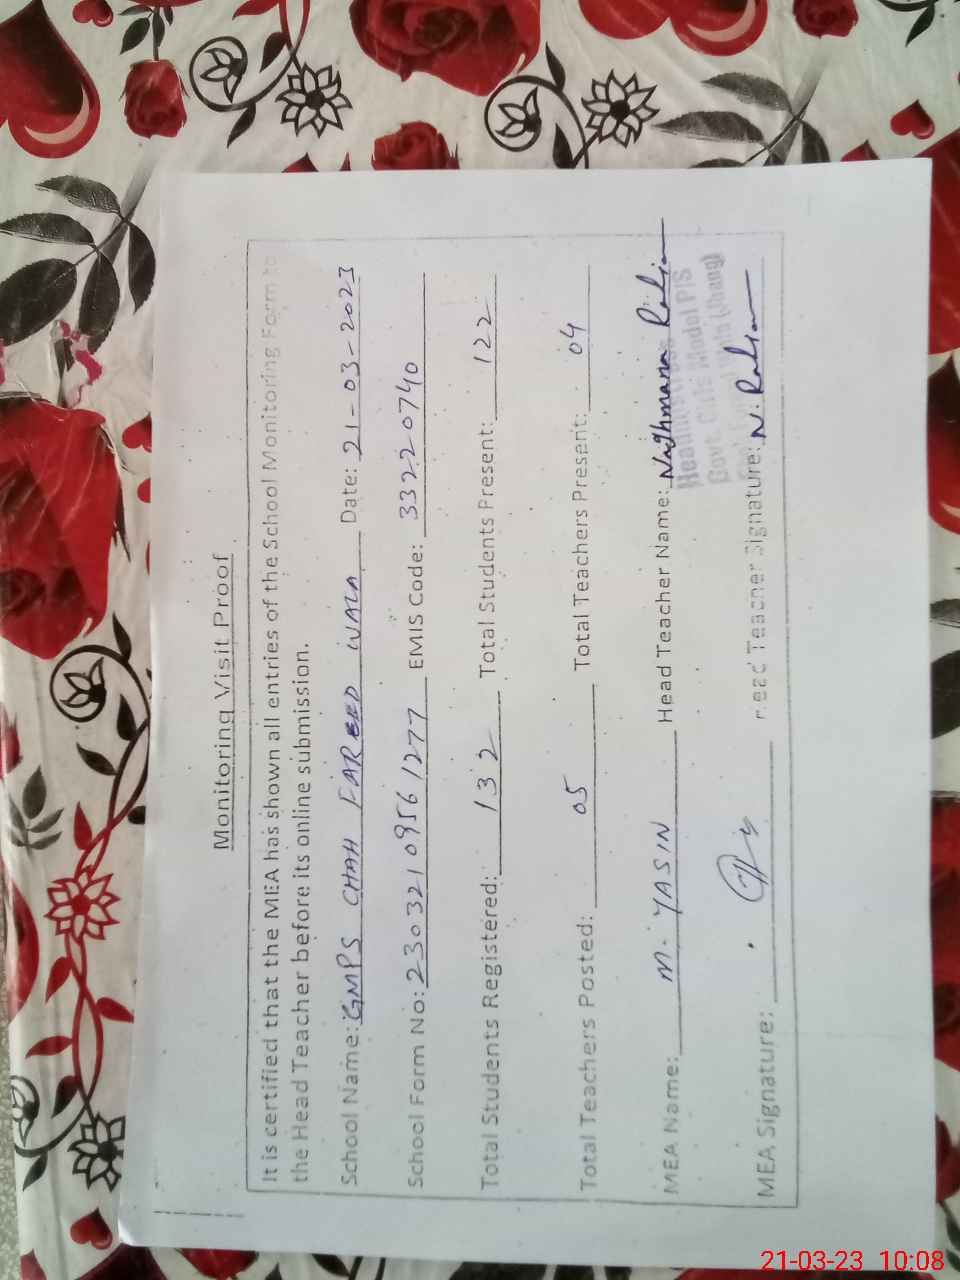 Monitoring Visit Proof
It is certified that the MEA has shown all entries of the School Monitoring Form to
the Head Teacher before its online submission.
School Name: GMPS CHAH FAREED WALA Date: 21-03-2023
School Form No: 23032109561277 EMIS Code: 33220740
Total Students Registered: 132 Total Students Present: 122
Total Teachers Posted: 05 Total Teachers Present: 04
MEA Name: M. YASIN Head Teacher Name: Naghmana
Headmistress
Govt. Girls Model P/S
(Jhang)
MEA Signature: Head Teacher Signature: N.
21-03-23 10:08